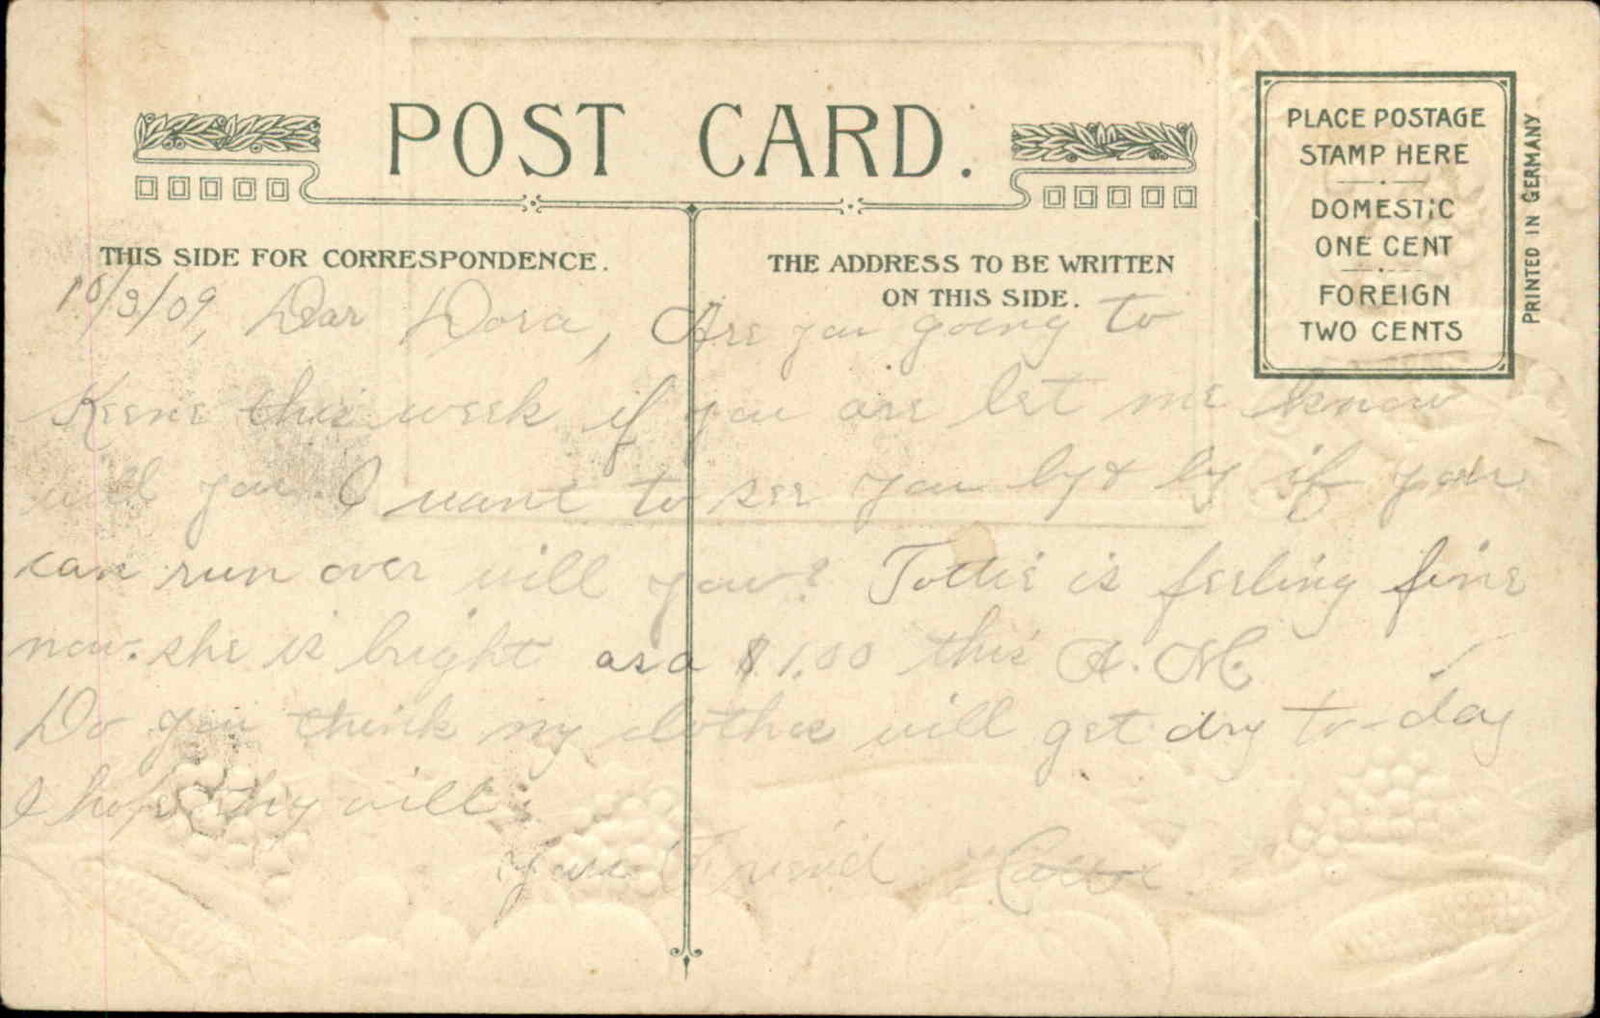 POST CARD.
PLACE POSTAGE
STAMP HERE
DOMESTIC
ONE CENT
FOREIGN
TWO CENTS
PRINTED IN GERMANY
THIS SIDE FOR CORRESPONDENCE.
THE ADDRESS TO BE WRITTEN
ON THIS SIDE.
10/3/09, Dear Dora, Are you going to
Keene this week if you are let me know
will you. I want to see you by & by if you
can run over will you? Tottie is feeling fine
now. she is bright as a $1.00 this A.M.
Do you think my clothes will get dry to-day
I hope they will.
Your Friend